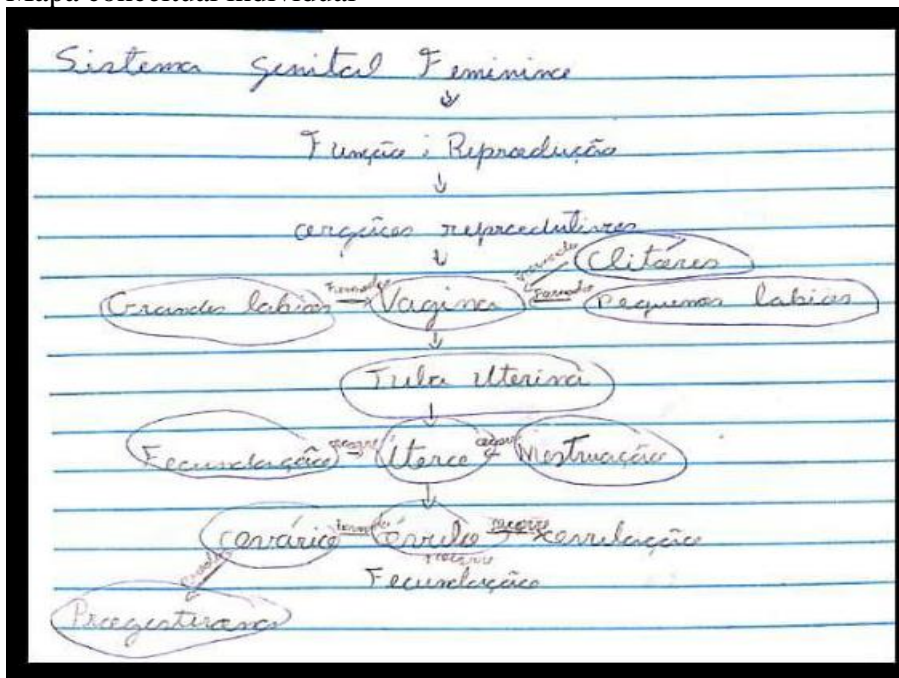 Mapa conceitual individual
Sistema genital Feminino
Função: Reprodução
orgãos reprodutivos
Clitóres
Grandes labios Formado Vagina Formado Pequenos labios
Tuba Uterina
Fecundação ocorre Útero ocorre Mestruação
ovário óvulo ocorre ovulação
ocorre
Fecundação
Progesterona